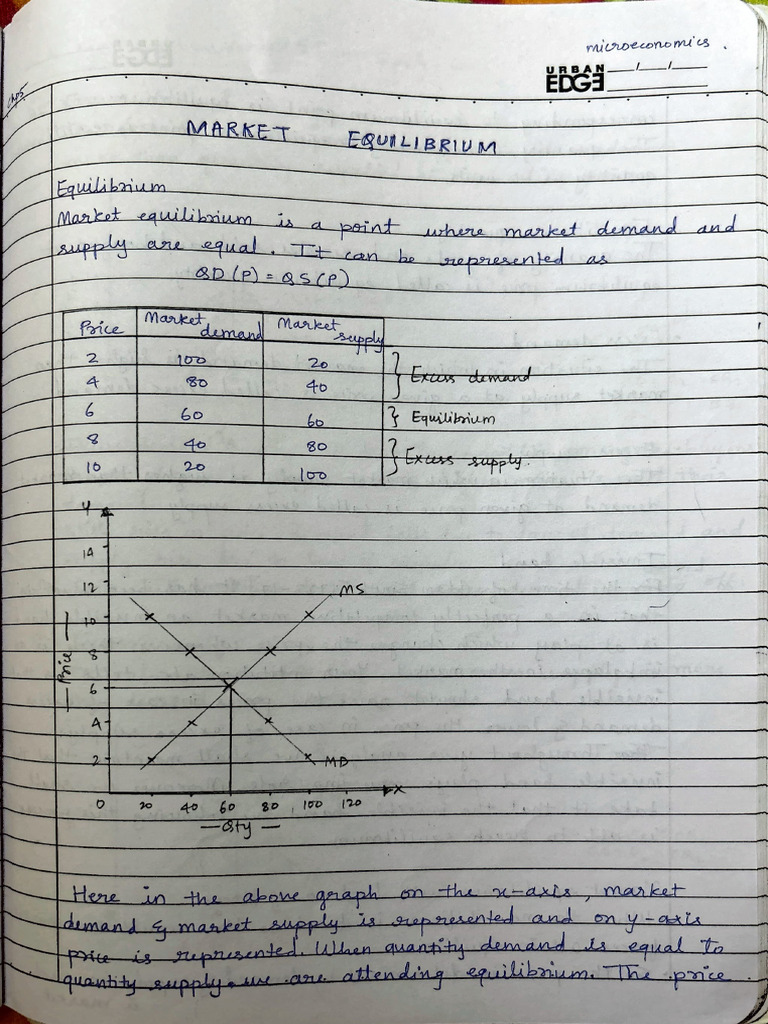 microeconomics.
URBAN
EDGE __/__/__
MARKET EQUILIBRIUM
Equilibrium
Market equilibrium is a point where market demand and
supply are equal. It can be represented as
QD(P) = QS(P)
Price Market demand Market supply
2 100 20
4 80 40
} Excess demand
6 60 60 } Equilibrium
8 40 80
10 20 100
} Excess supply.
Y
14
12
10
8
6
4
2
0 20 40 60 80 100 120 x
MS
MD
— Price —
— Qty —
Here in the above graph on the x-axis, market
demand & market supply is represented and on y-axis
price is represented. When quantity demand is equal to
quantity supply we are attending equilibrium. The price